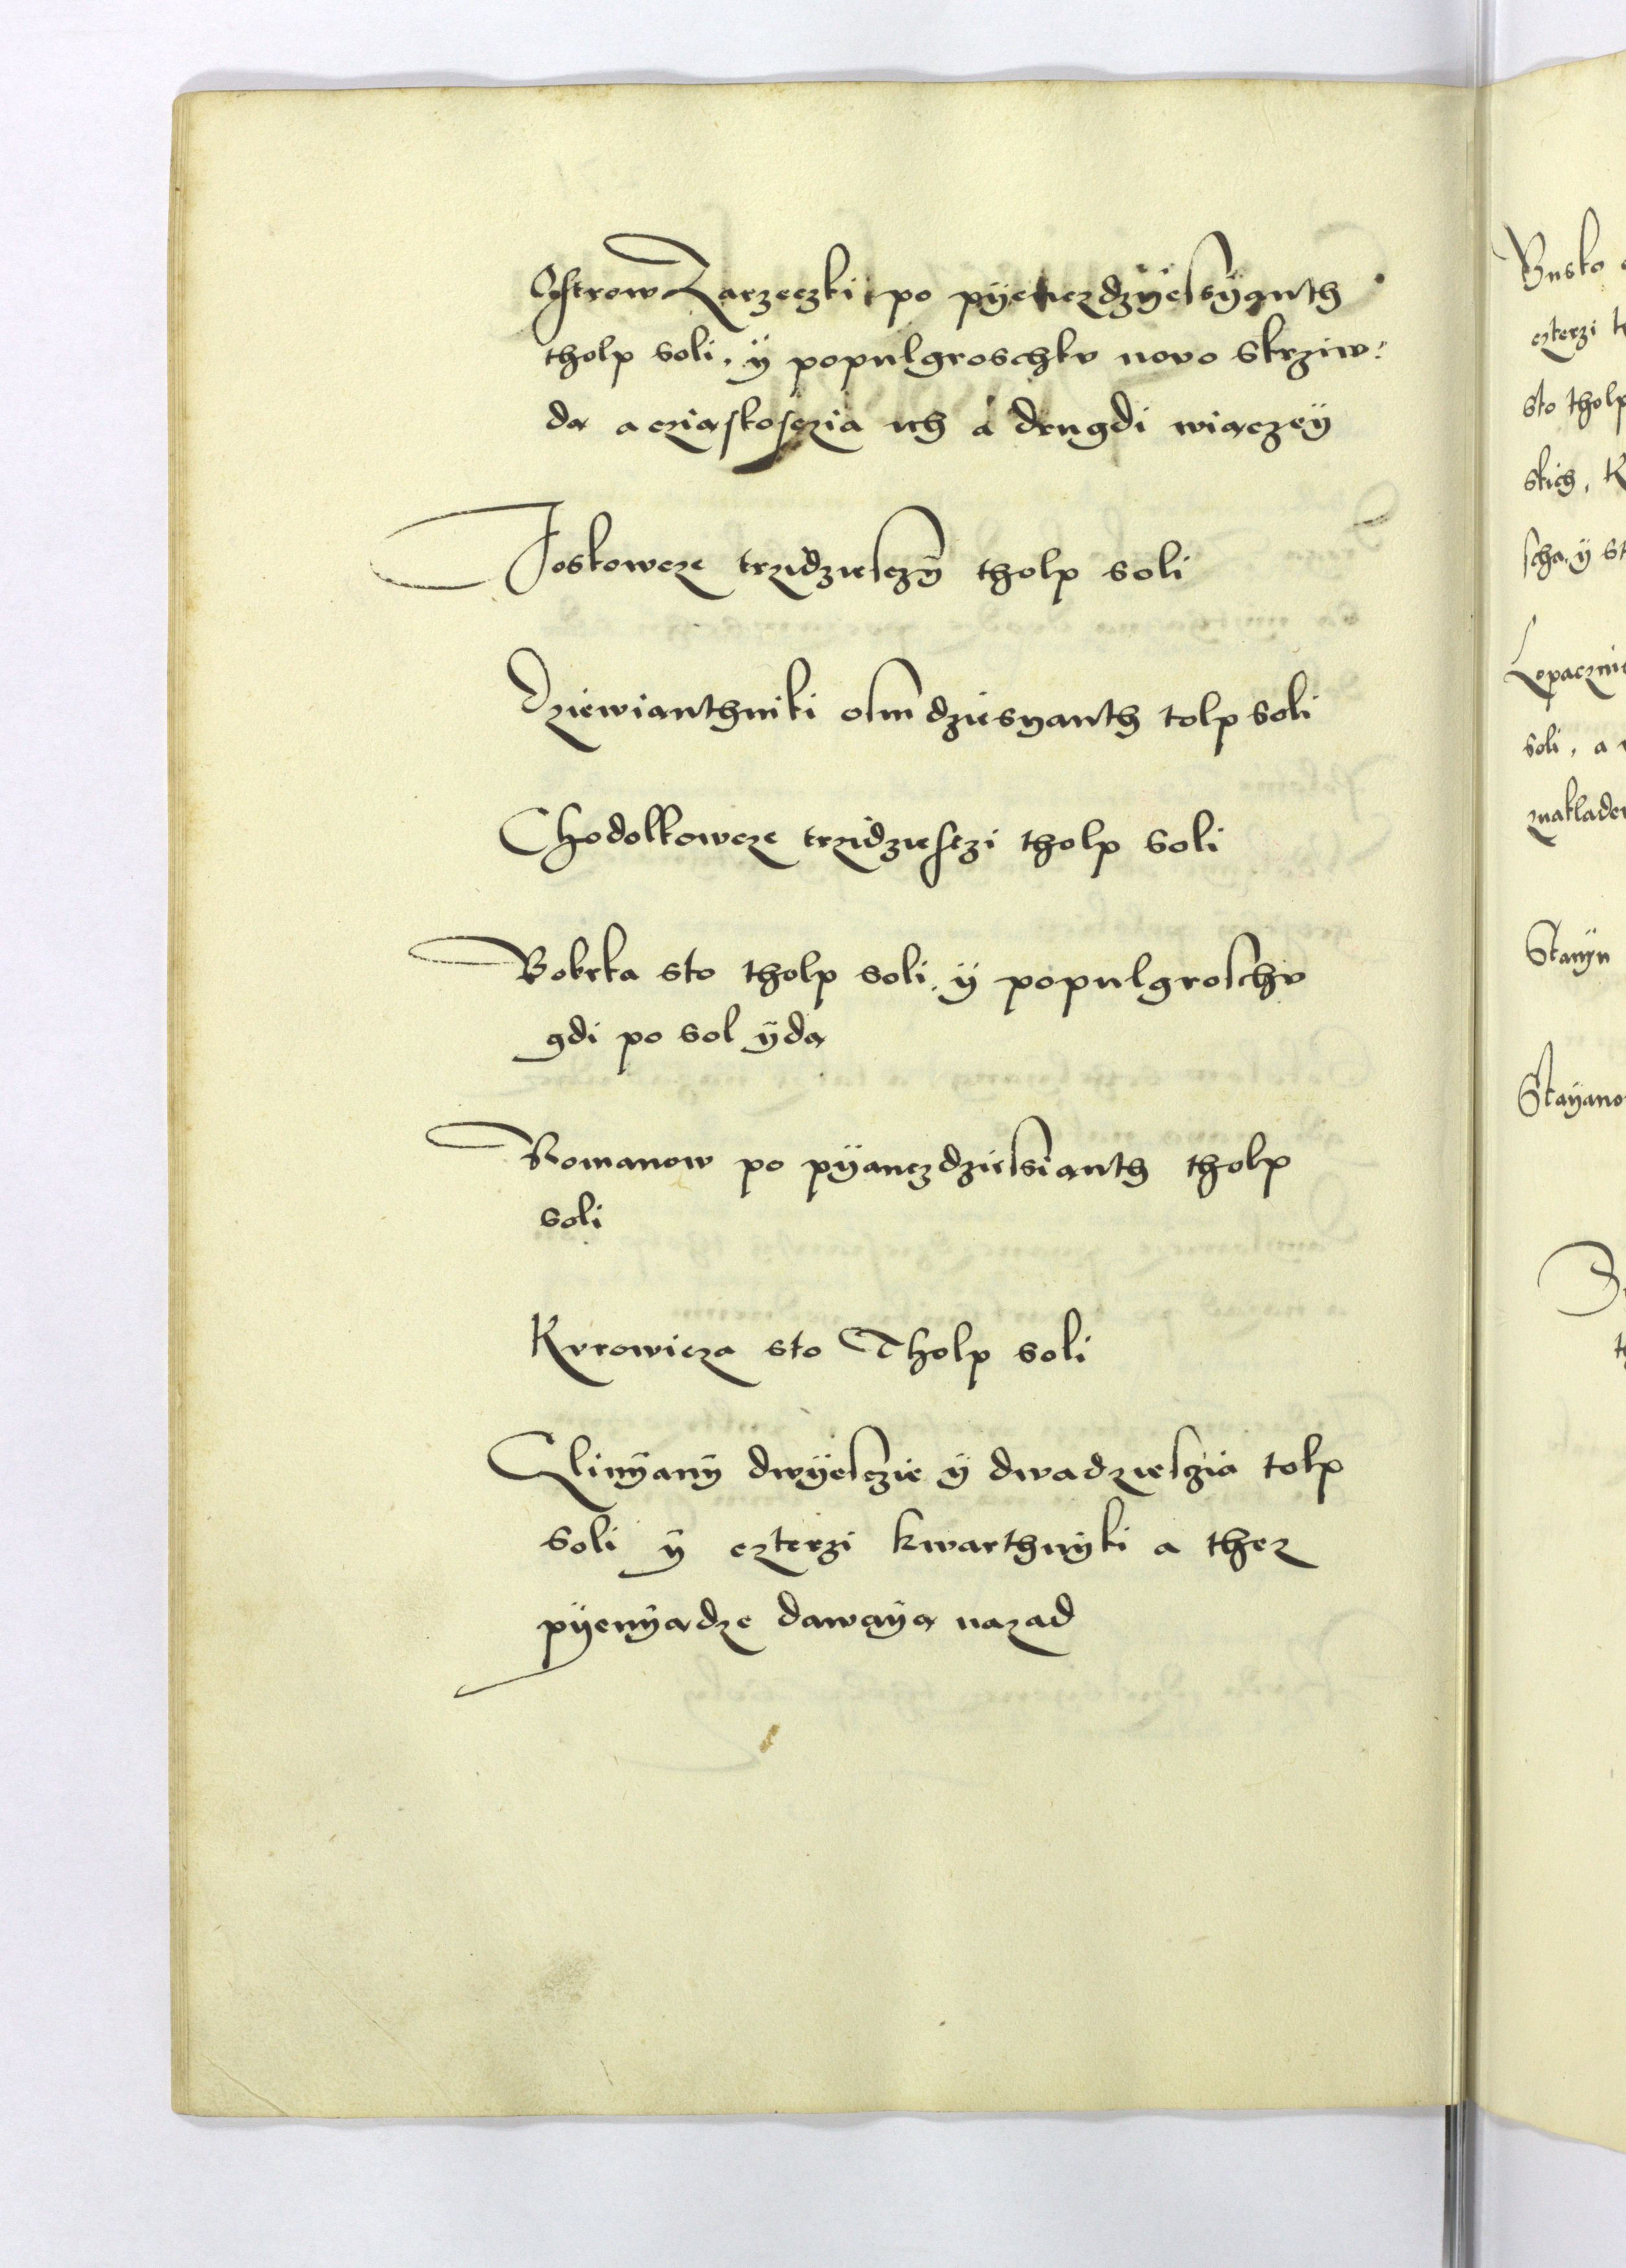 Ostrow Zarzeczki po pÿenczdzÿesÿanth
tholp soli, ÿ populgroschkv novo skrziw:
da a cziaskosczia ich a drugdi wiaczeÿ
Joskowcze trzidziesczÿ tholp soli
Dziewianthniki osmdziesyanth tolp soli
Chodolkowcze trzidziesczi tholp soli
Bobrka sto tholp soli, ÿ populgroschv
gdi po sol ÿda
Romanow po pÿanczdziesianth tholp
soli
Kvrowicza sto Tholp soli
Glinÿanÿ dwÿesczie ÿ dwadziesczia tolp
soli ÿ czterzi kwarthnÿki a thez
pÿenÿadze dawaÿa nazad
Busko
czterzi
sto tholp
skich,
scha, ÿ
Lopaczni
soli, a
znaklade
Stanÿn
Staÿano